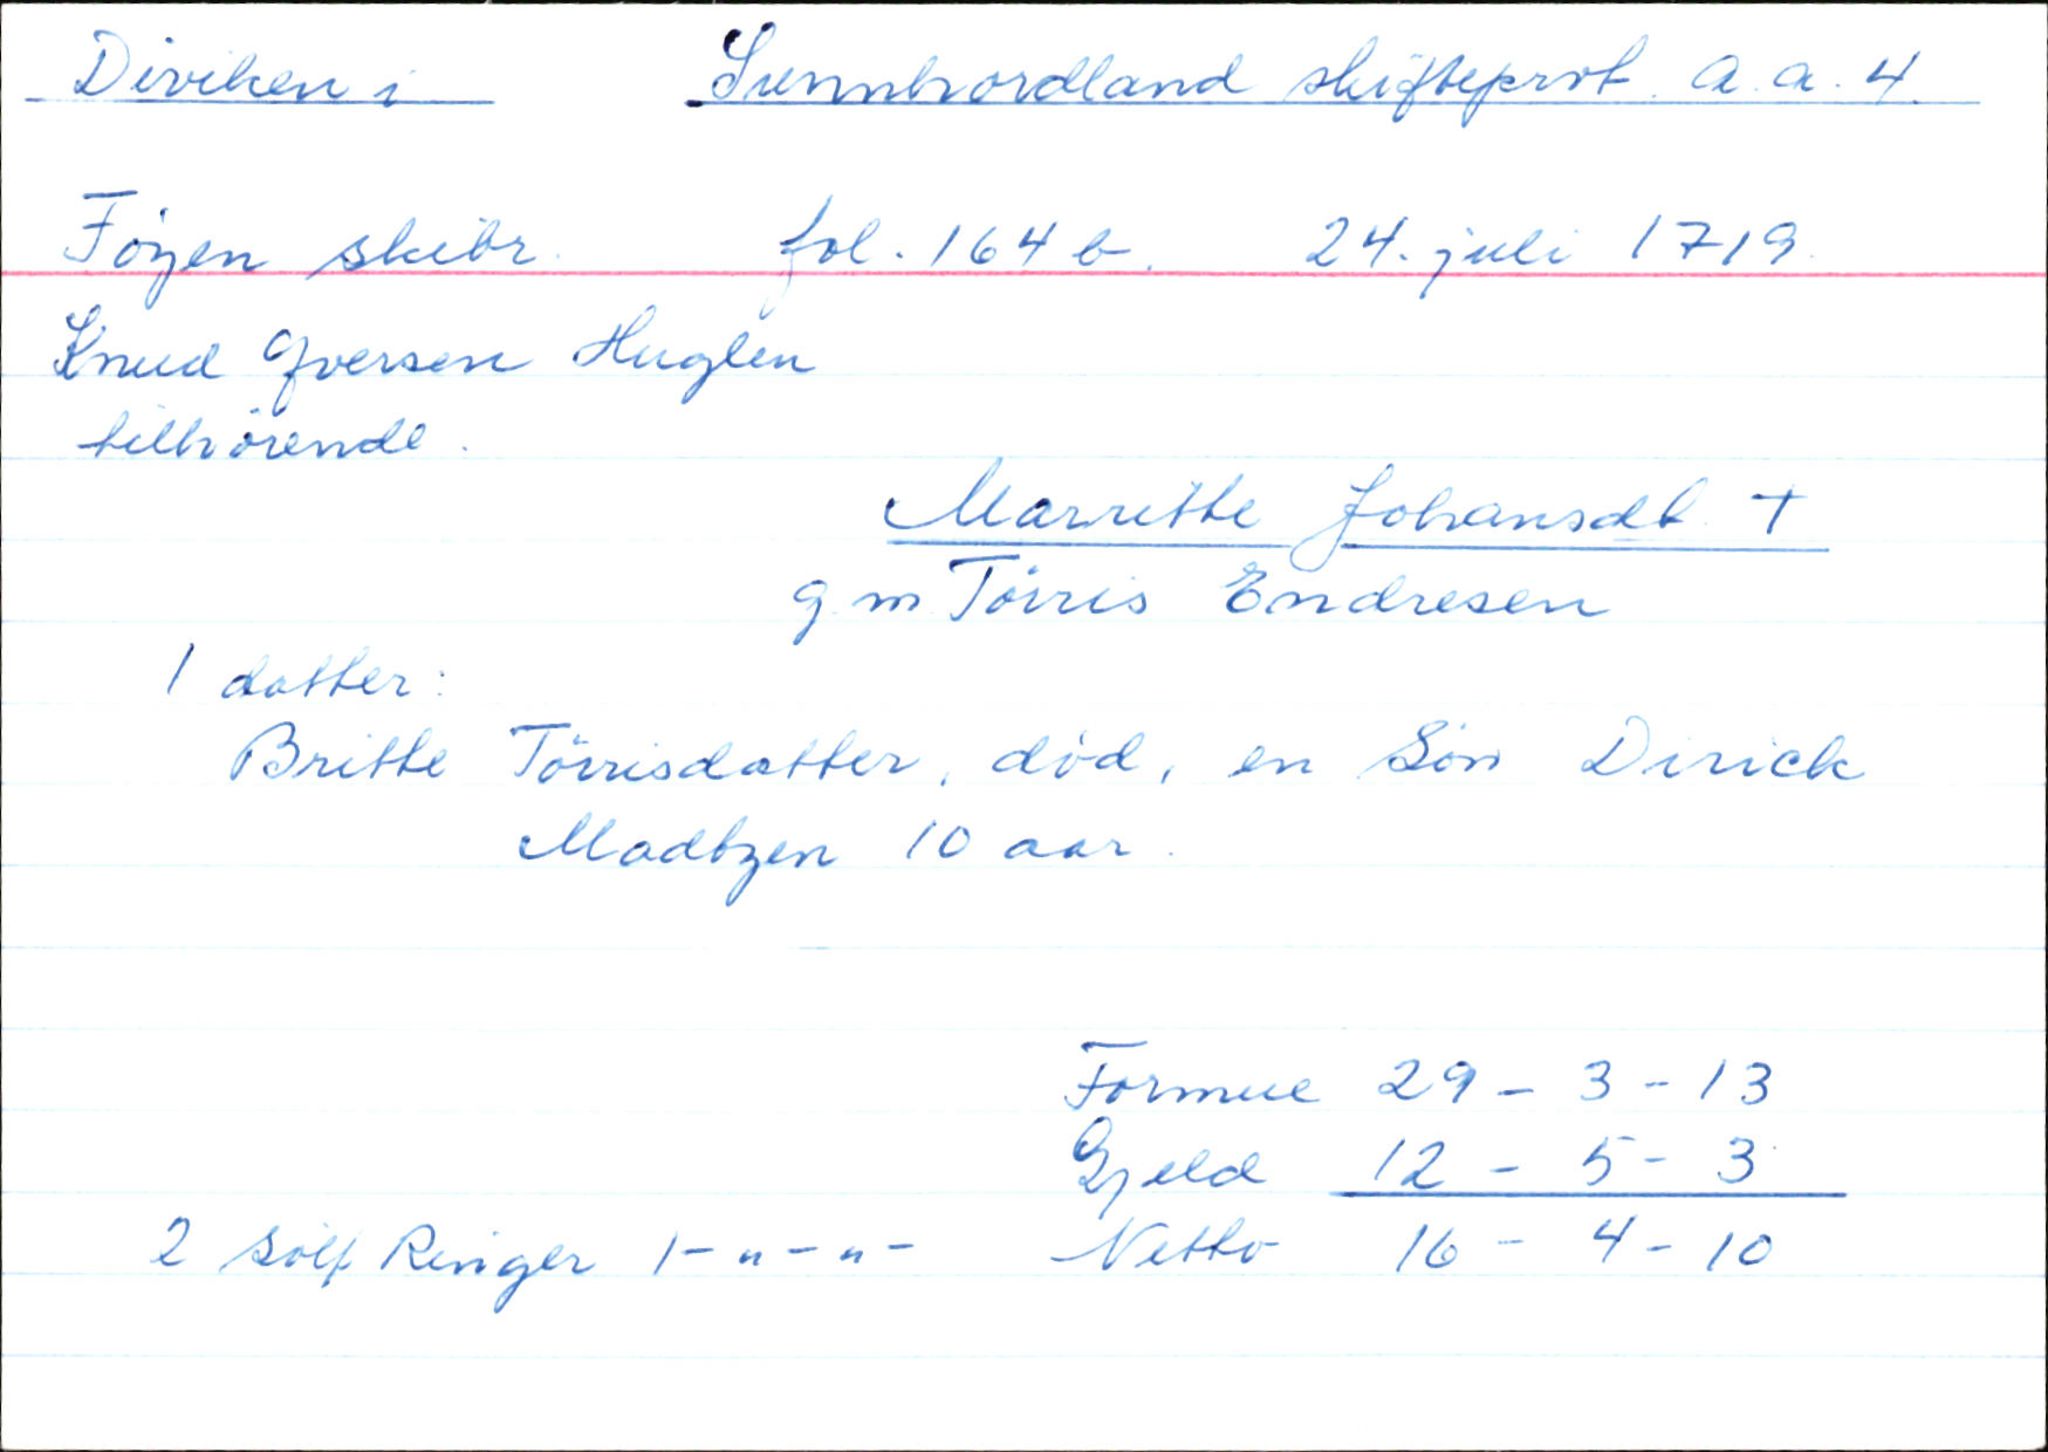 Diviken i Sunnhordland skifteprot. A.a.4.
Föyen skibr. fol. 164 b. 24. juli 1719.
Knud Iversen Huglen
tilhörende.
Marritte Johansdt. +
g m Törris Endresen
1 datter:
Britte Törrisdatter, död, en Sön Dirick
Madtzen 10 aar.
Formue 29 - 3 - 13
Gjeld 12 - 5 - 3
2 Sölf Ringer 1 - " - " - Netto 16 - 4 - 10